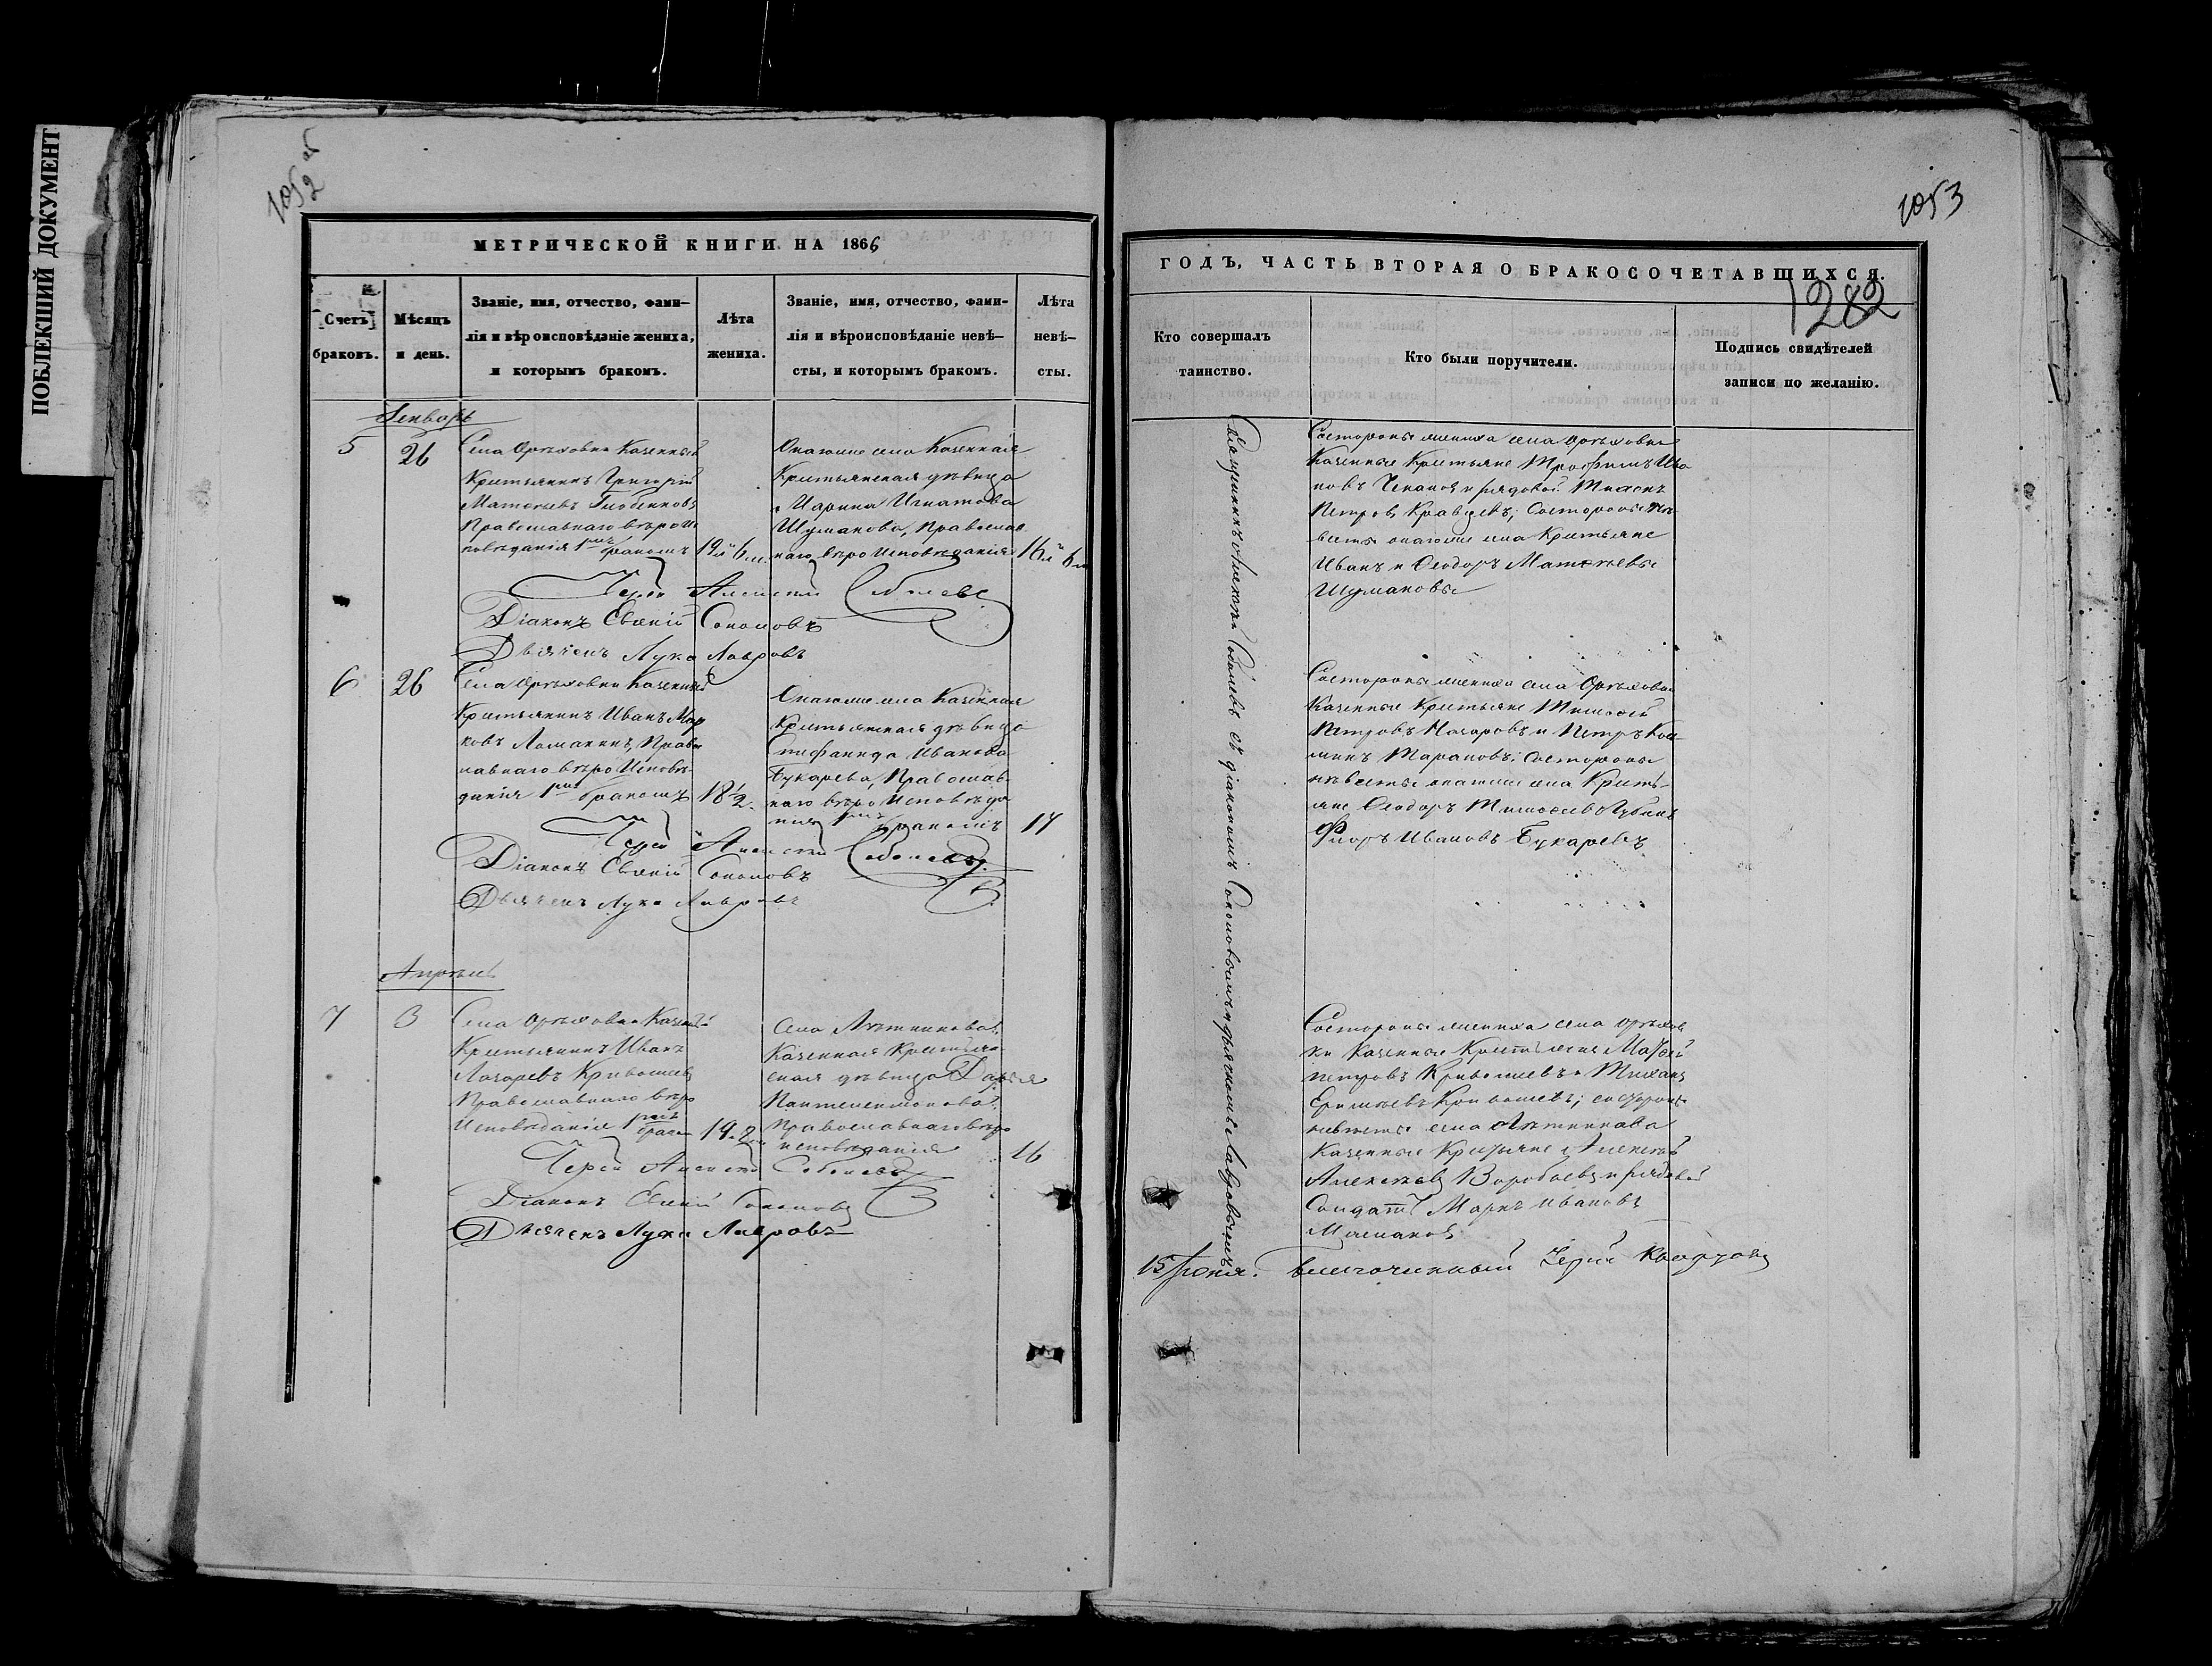 ПОБЛЕКШИЙ ДОКУМЕНТ
1052 об
МЕТРИЧЕСКОЙ КНИГИ НА 1866
Счетъ браковъ.
Мѣсяцъ и день.
Званіе, имя, отчество, фами-
лія и вѣроисповѣданіе жениха,
и которымъ бракомъ.
Лѣта жениха.
Званіе, имя, отчество, фами-
лія и вѣроисповѣданіе невѣ-
сты, и которымъ бракомъ.
Лѣта невѣ-
сты.
Генварь
5
26
Села Орѣховки Казенный
Крестьянинъ Григорій
Матѳеевъ
Православнаго вѣроис
повѣданія 1мъ бракомъ
19 л. 6 м.
Онагоже села Казенная
Крестьянская дѣвица
Марина Игнатова
Шуманова, Православ
наго вѣроисповѣданія
16 л. 6 м
Іерей Алексей Соболевъ
Діаконъ Евѳеній Соколовъ
Дьячекъ Лука Лавровъ
6
26
Села Орѣховки Казенный
Крестьянинъ Иванъ Мар
ковъ Ломакинъ, Право
славнаго вѣроисповѣ-
данія 1мъ бракомъ
18 1/2.
Онагоже села Казенная
Крестьянская дѣвица
Стефанида Иванова
Букарева, Православ-
наго вѣроисповѣда
нія 1мъ бракомъ
17
Іерей Алексей Соболевъ
Діаконъ Евѳеній Соколовъ
Дьячекъ Лука Лавровъ
Апрѣль
7
3
Села Орѣховки Казенный
Крестьянинъ Иванъ
Лазаревъ Кривошеевъ
Православнаго вѣро
Исповѣданія 1мъ брак
19. 2 м
Села Лѣтникова
Казенная Крестьян
ская дѣвица Дарья
Пантелеимонова
православнаго вѣро
исповѣданія
16
Іерей Алексей Соболевъ
Діаконъ Евѳеній Соколовъ
Дьячекъ Лука Лавровъ
1053
ГОДЪ, ЧАСТЬ ВТОРАЯ О БРАКОСОЧЕТАВШИХСЯ.
1282
Кто совершалъ
таинство.
Кто были поручители.
Подпись свидѣтелей
записи по желанію.
Священникъ Алексей Соболевъ съ діакономъ Соколовымъ и дьячкомъ Лавровымъ
Состороны жениха села Орѣховки
Казенные Крестьяне Трофимъ Ива
новъ Чеканов и рядовой Тихонъ
Петров Кравцевъ; Состороны не
весты онагоже села Крестьяне
Иванъ и Ѳеодоръ Матѳеевы
Шумановы
Состороны жениха села Орѣховки
Казенные Крестьяне Тимоѳей
Петровъ Назаровъ и Петръ Коз-
минъ Тарановъ; Состороны
невѣсты онагоже села Кресть-
яне Ѳеодоръ Тимоѳеев
Флоръ Ивановъ Букаревъ
Состороны жениха села Орѣхов
ки Казенные Крестьяне
Петровъ Кривошеевъ и Тихонъ
Кривошеевъ; состороны
невѣсты села Лѣтникова
Казенные Крестьяне Алексей
Алексеевъ Воробьевъ и рядовой
Солдатъ Маркъ Ивановъ
15 Іюня. Благочинный Іерей